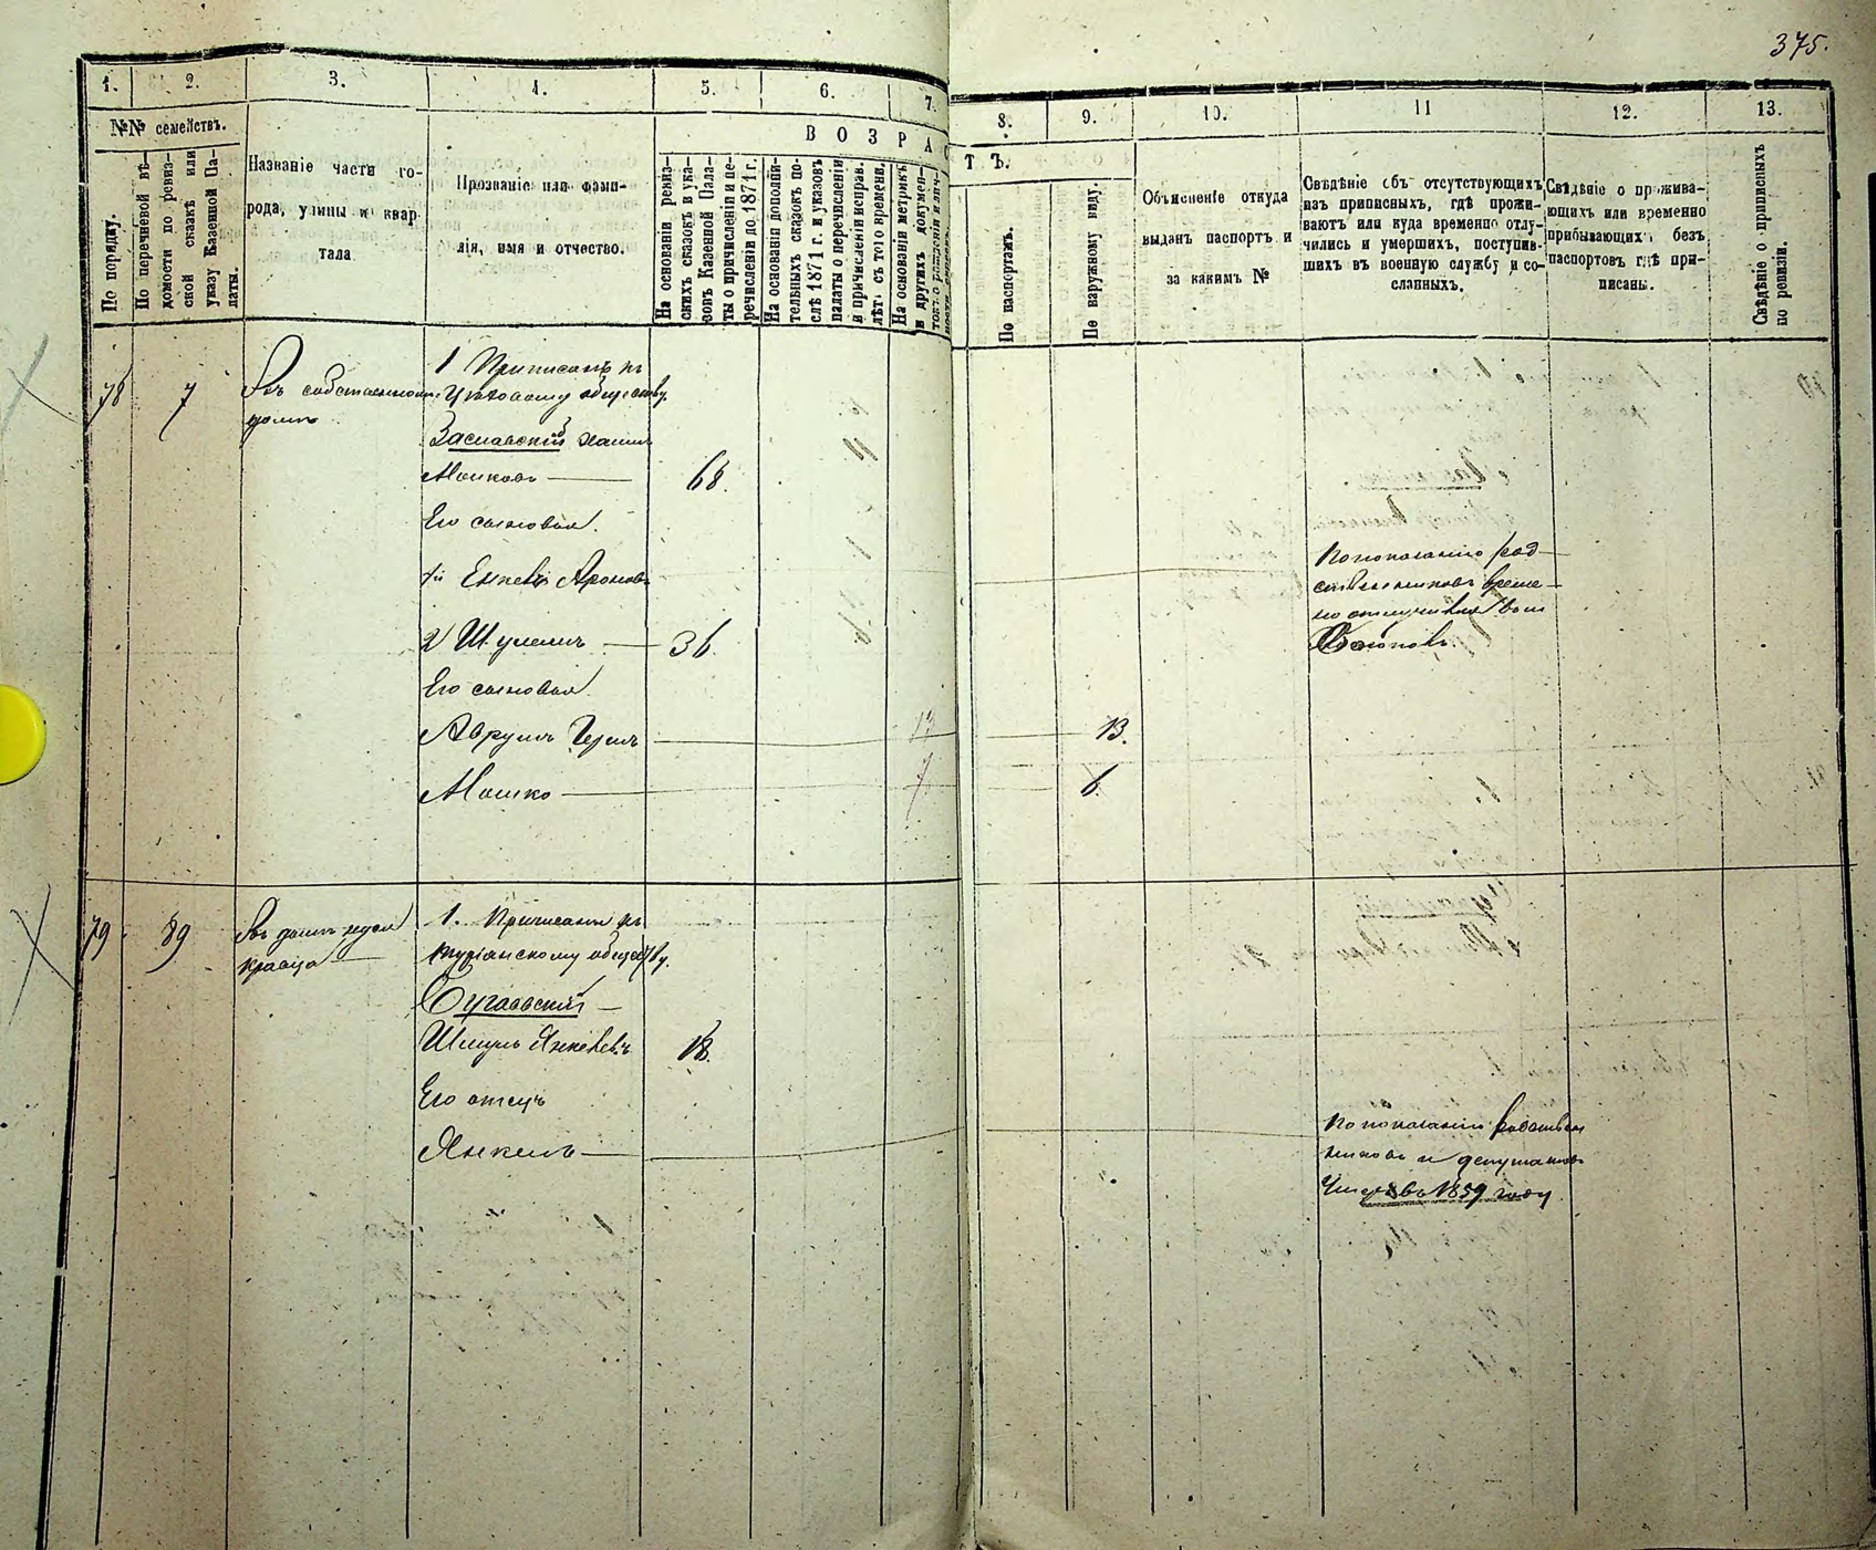 375.
1. 2. 3. 4. 5. 6. 7. 8. 9. 10. 11 12. 13.
№№ семействъ.
По порядку.
По перечневой вѣ-
домости по ревиз-
ской сказкѣ или
указу Казенной Па-
латы.
Названіе части го-
рода, улицы и квар
тала
Прозваніе или фами-
лія, имя и отчество.
ВОЗРАСТЪ.
На основаніи ревиз-
скихъ сказокъ и ука-
зовъ Казенной Пала-
ты о причисленіи и пе-
речисленіи до 1871 г.
На основаніи дополни-
тельныхъ сказокъ по-
слѣ 1871 г. и указовъ
палаты о перечисленіи
и причисленіи исправ.
лѣтъ съ того времени.
На основаніи метрикъ
и другихъ докумен-
По паспортамъ.
По наружному виду.
Объясненіе откуда
выданъ паспортъ и
за какимъ №
Свѣдѣніе объ отсутствующихъ
изъ приписныхъ, гдѣ прожи-
ваютъ или куда временно отлу-
чились и умершихъ, поступив-
шихъ въ военную службу и со-
сланныхъ.
Свѣдѣніе о прожива-
ющихъ или временно
прибывающихъ безъ
паспортовъ гдѣ при-
писаны.
Свѣдѣніе о приписныхъ
по ревизіи.
78 7 Въ собственномъ
домѣ
1 Приписанъ къ
обществу.
Заславскій
Мошковъ 68.
Его сыновья.
1й Ароновъ
По показанію род-
ственниковъ време-
но отлучился
2й Шулимъ 36
Его сыновья
Аврумъ Гершъ 13 13.
Мошко 7 6.
79 89 Въ домѣ
Кравца
1. Приписанъ къ
обществу.
Шмуль Янкелевъ 18.
Его отецъ
Янкель
По показанію родствен
никовъ и депутатовъ
Умеръ въ 1859 году